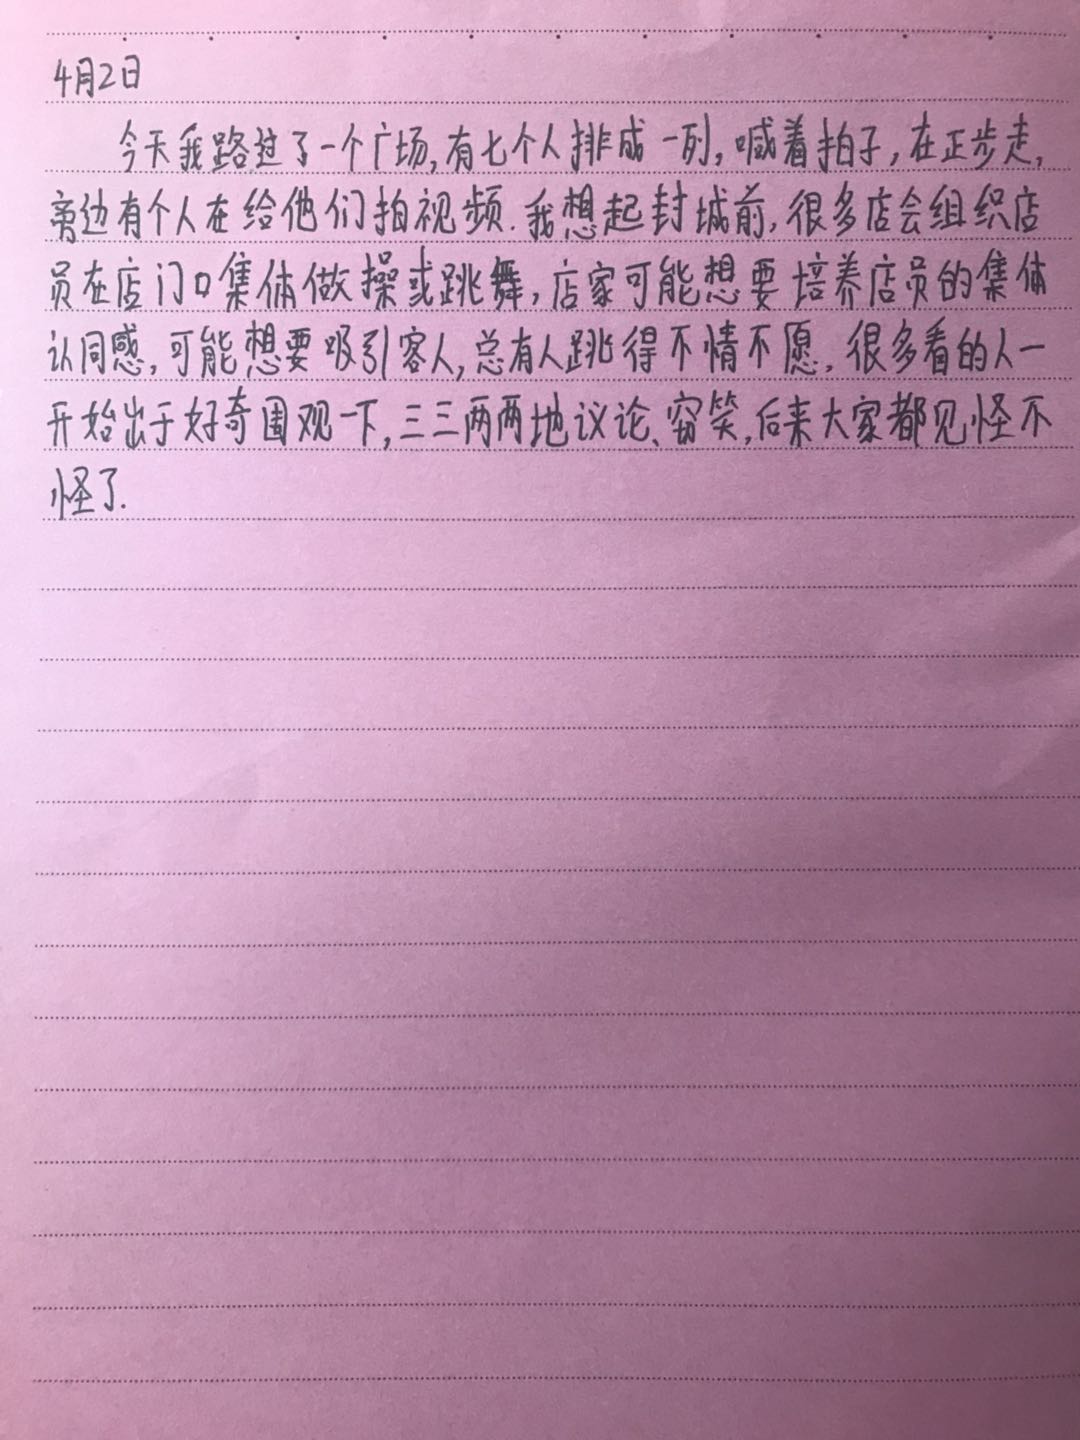 4月2日
今天我路过了一个广场,有七个人排成一列,喊着拍子,在正步走,
旁边有个人在给他们拍视频.我想起封城前,很多店会组织店
员在店门口集体做操或跳舞,店家可能想要培养店员的集体
认同感,可能想要吸引客人,总有人跳得不情不愿.很多看的人一
开始出于好奇围观一下,三三两两地议论、窃笑,后来大家都见怪不
怪了.